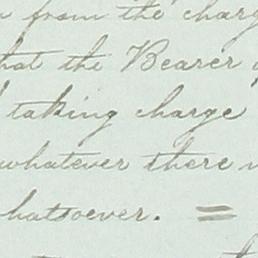 from the charg
hat the Bearer
taking charge
whatever there
hatsoever. =